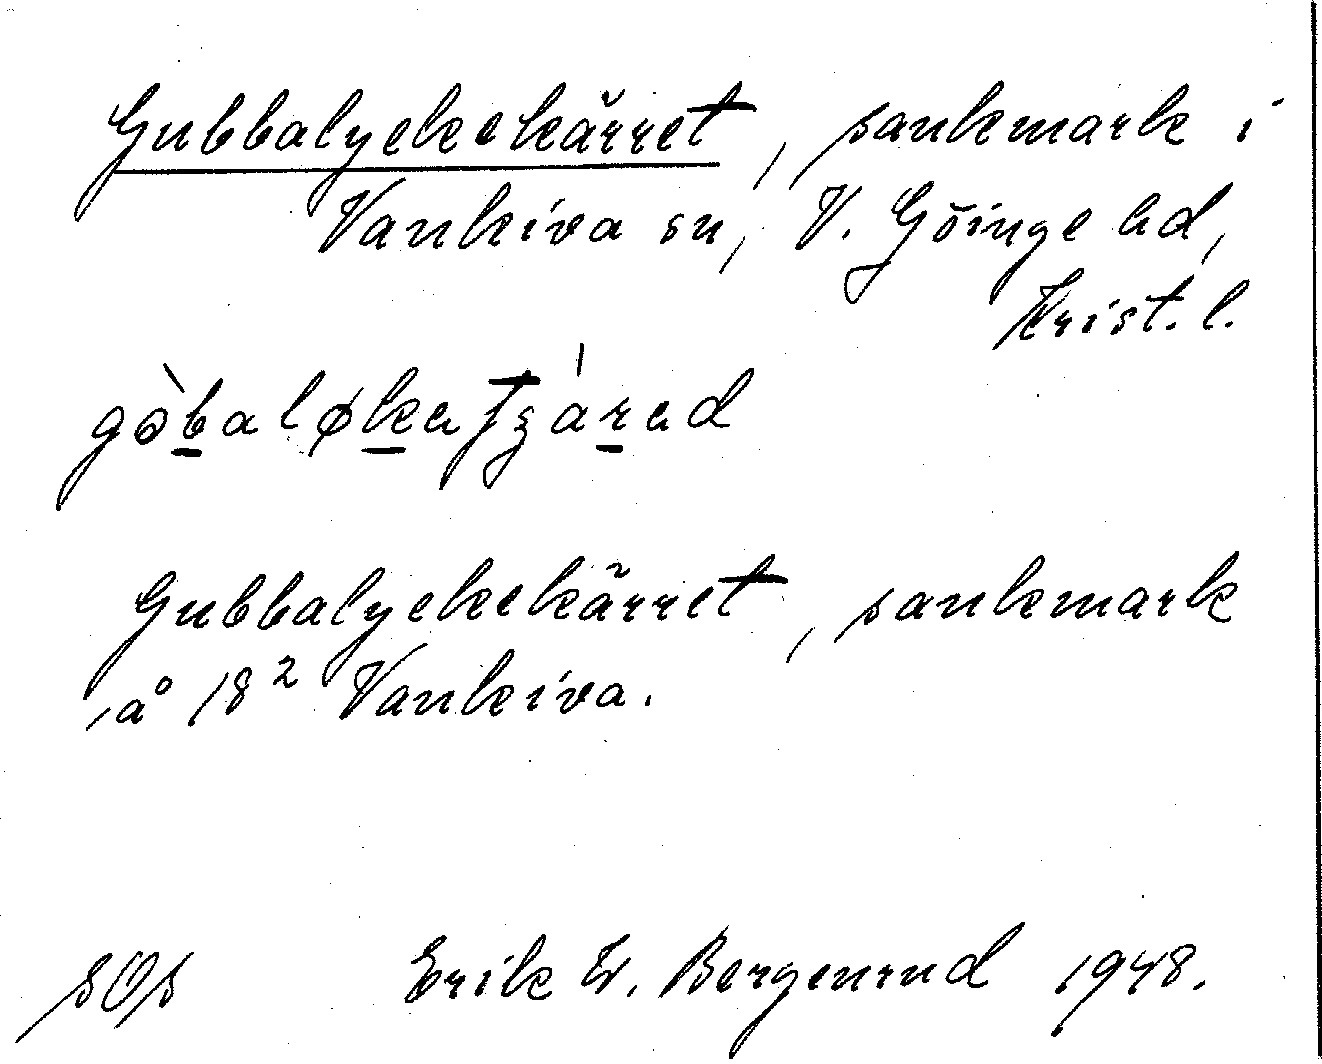 Gubbalyckekärret, sankmark i
Vankiva sn, V. Göinge hd,
Krist. l.
Gubbalyckekärret, sankmark
å 18² Vankiva.
SOS Erik W. Bergenrud 1948.